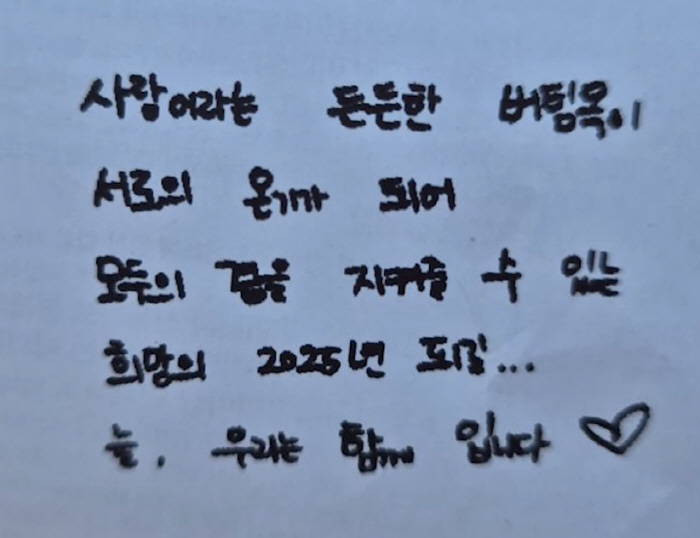 사랑이라는 든든한 버팀목이
서로의 온기가 되어
모두의 꿈을 지켜줄 수 있는
희망의 2025년 되길...
늘, 우리는 함께 입니다 ♡